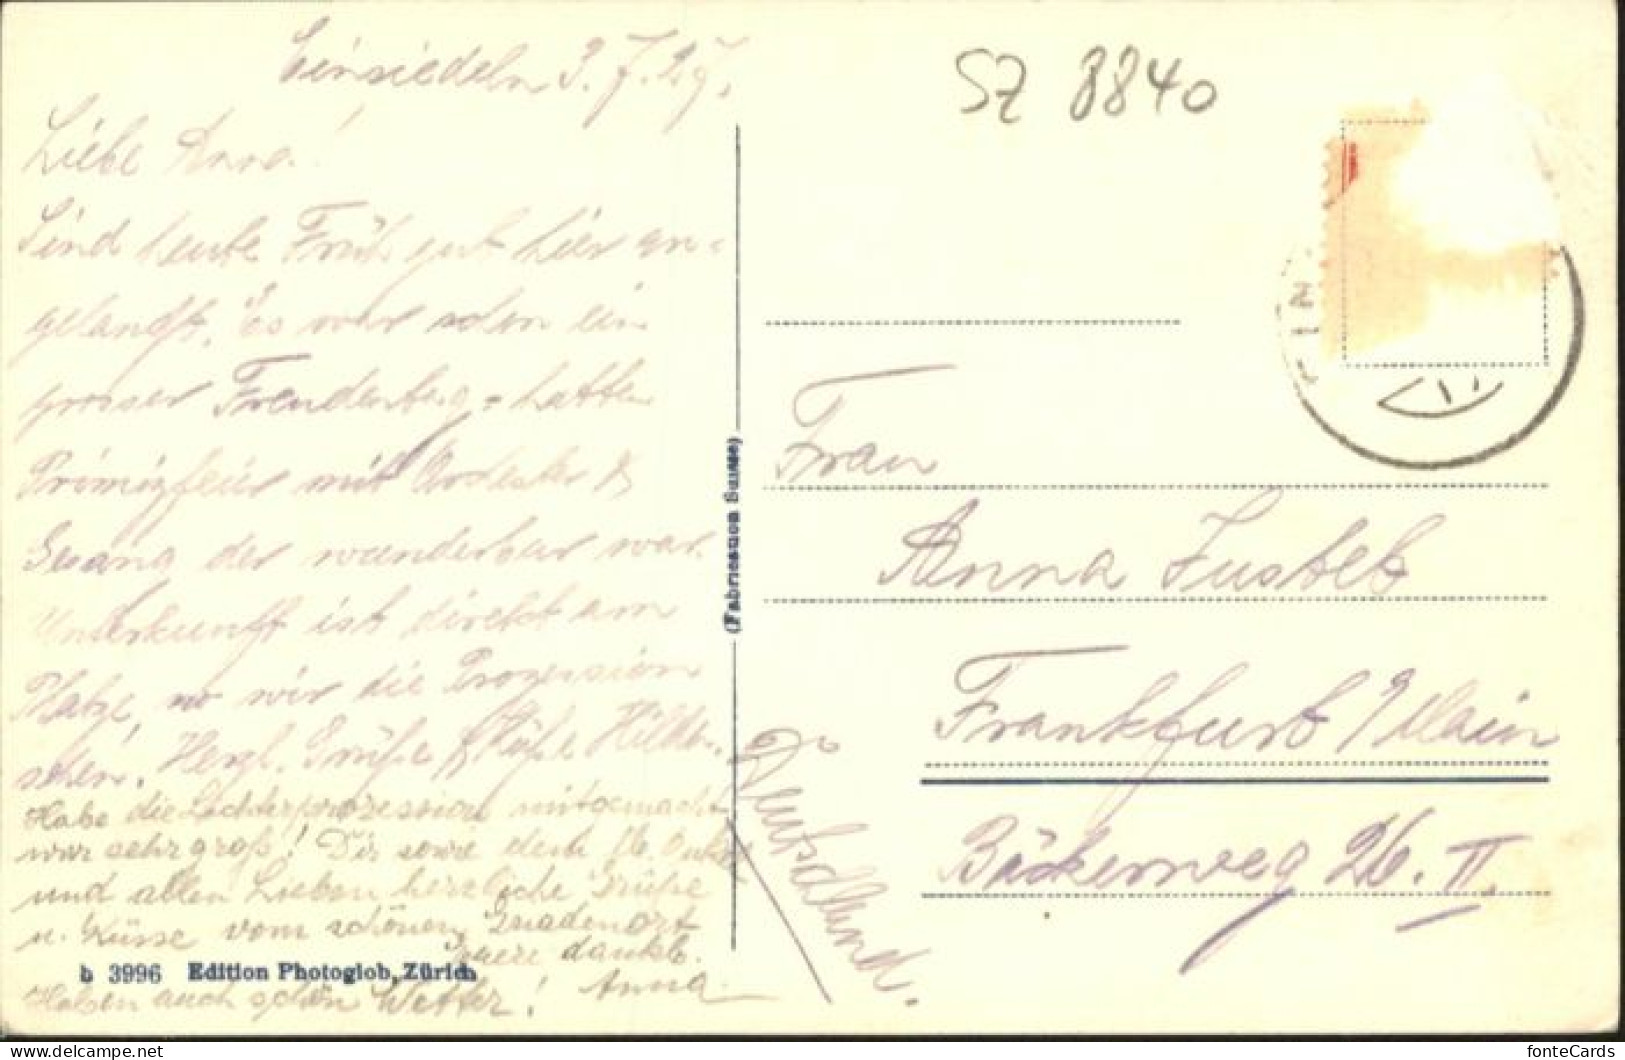 Einsiedeln 3.7.27.
Liebe Anna!
Sind heute Früh gut hier an-
gelangt. Es war schon ein
grosser Freudentag, hatten
Primizfeier mit Orchester &
Gesang der wunderbar war.
Unterkunft ist direkt am
Platze, wo wir die Prozession
sehen. Herzl. Grüße & Küße
Habe die Lichterprozession mitgemacht
war sehr groß! Dir sowie dem lb.
und allen Lieben herzliche Grüße
u. Küsse vom schönen Gnadenort
dankb.
Anna
b 3996 Edition Photoglob, Zürich
Haben auch schön Wetter!
(Fabrication Suisse)
SZ 8840
Frau
Anna
Frankfurt / Main
Bäckerweg 26. II
Deutschland.
fonteCards
delcampe.net